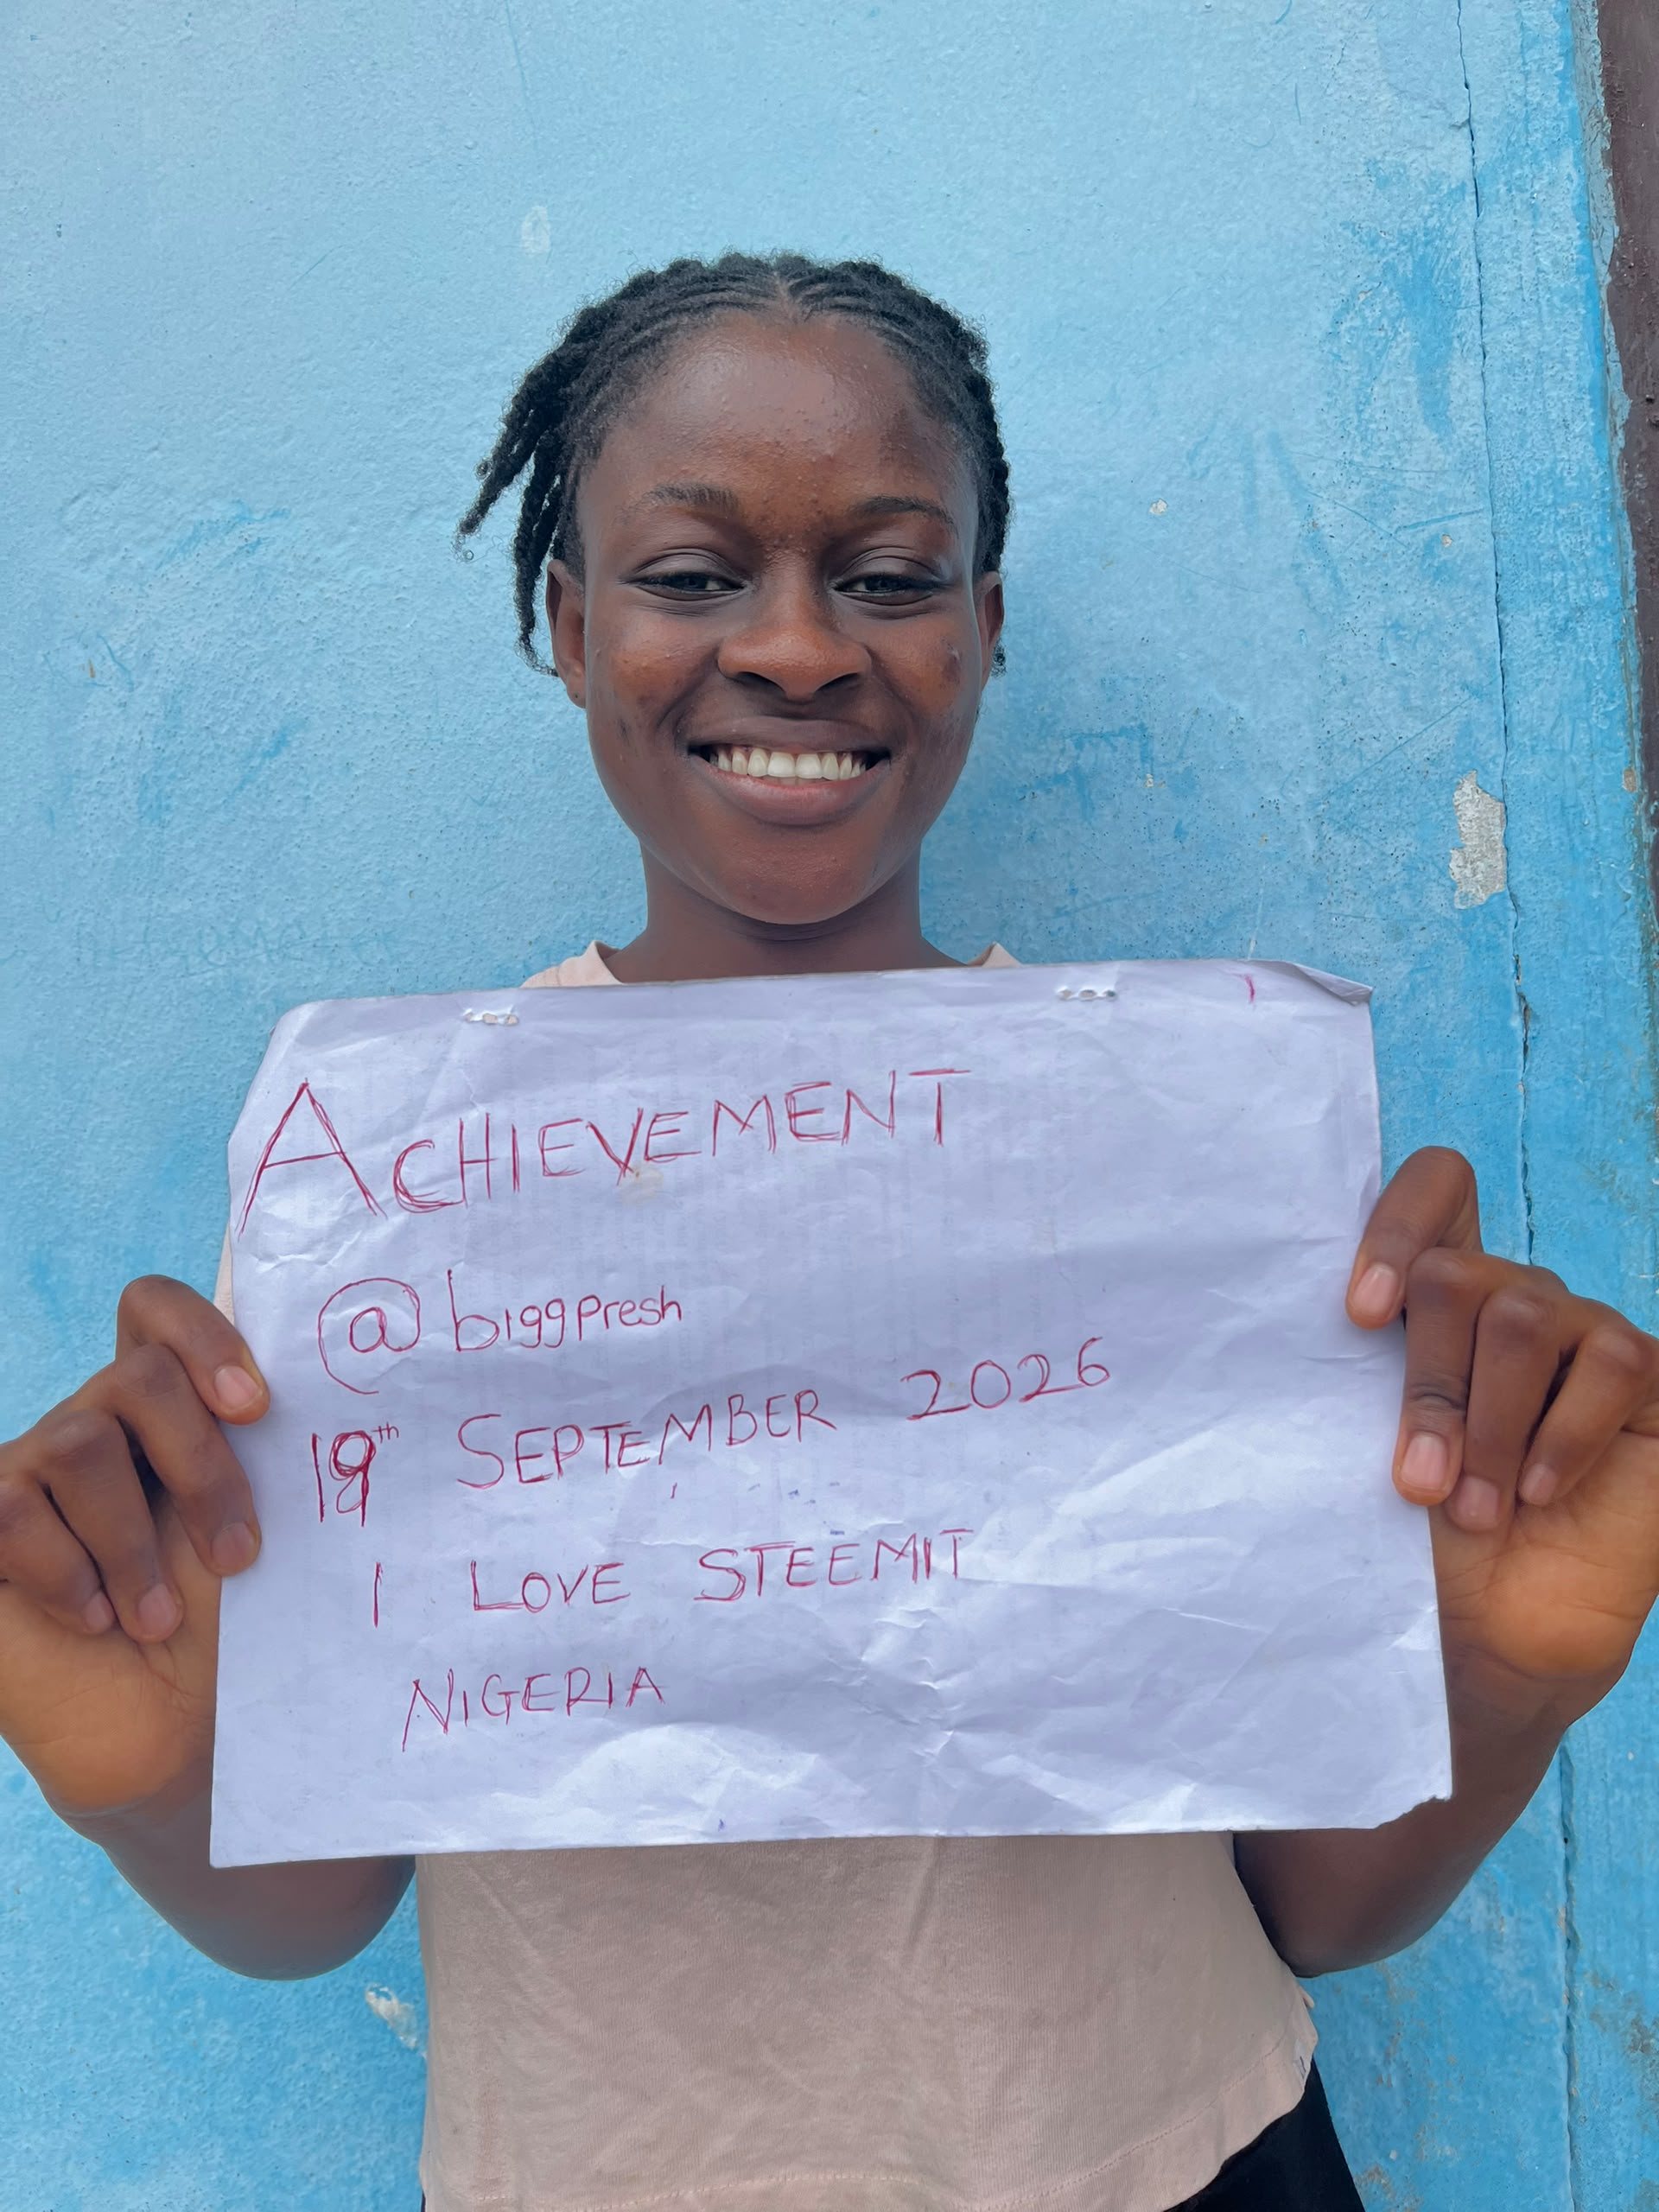 ACHIEVEMENT
@biggpresh
SEPTEMBER 2026
I LOVE STEEMIT
NIGERIA